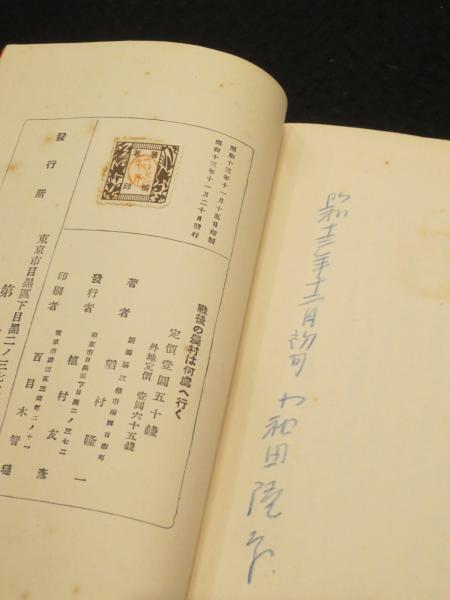 昭和十三年十一月十五日印刷
昭和十三年十一月二十日發行
著者
印
戰後の農村は何處へ行く
定價壹圓五十錢
外地定價 壹圓六十五錢
著者 稻村隆一
發行者 東京市目黑區下目黑二ノ三七二
植村友彦
印刷者
百目木智璉
發行所 東京市目黑區下目黑二ノ三七
第
昭和十三年十二月初旬
和田